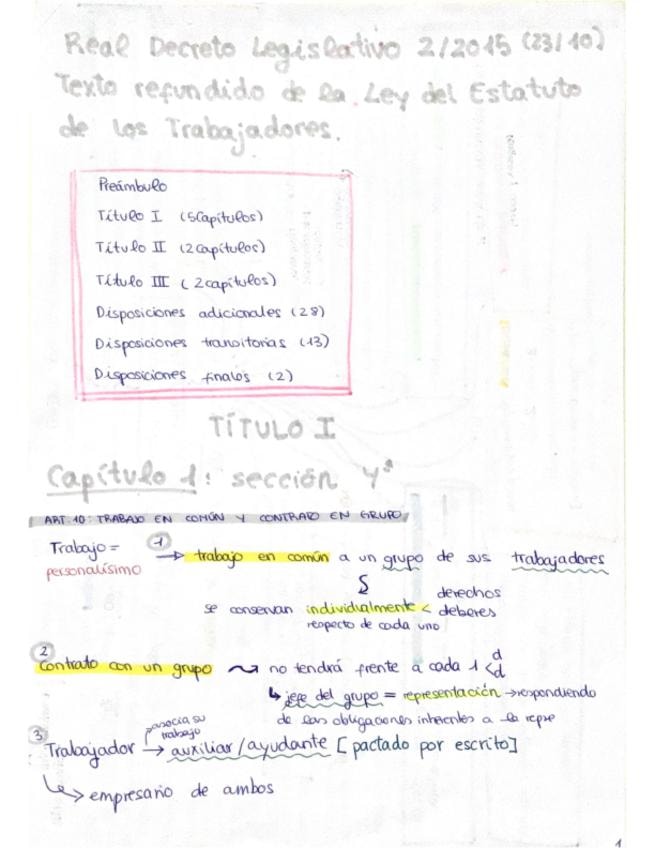 Real Decreto Legislativo 2/2015 (23/10)
Texto refundido de la Ley del Estatuto
de los Trabajadores.
Preámbulo
Título I (5 Capítulos)
Título II (2 Capítulos)
Título III (2 capítulos)
Disposiciones adicionales (28)
Disposiciones transitorias (13)
Disposiciones finales (2)
TÍTULO I
Capítulo 1: sección 4ª
ART. 10: TRABAJO EN COMÚN Y CONTRATO EN GRUPO.
Trabajo = 1 → trabajo en común a un grupo de sus trabajadores
personalísimo
se conservan individualmente < derechos
deberes
respecto de cada uno
2
Contrato con un grupo no tendrá frente a cada 1 < d
d
↳ jefe del grupo = representación → respondiendo
de las obligaciones inherentes a la repre
3 asocia su
trabajo
Trabajador → auxiliar/ayudante [pactado por escrito]
↳ empresario de ambos
1